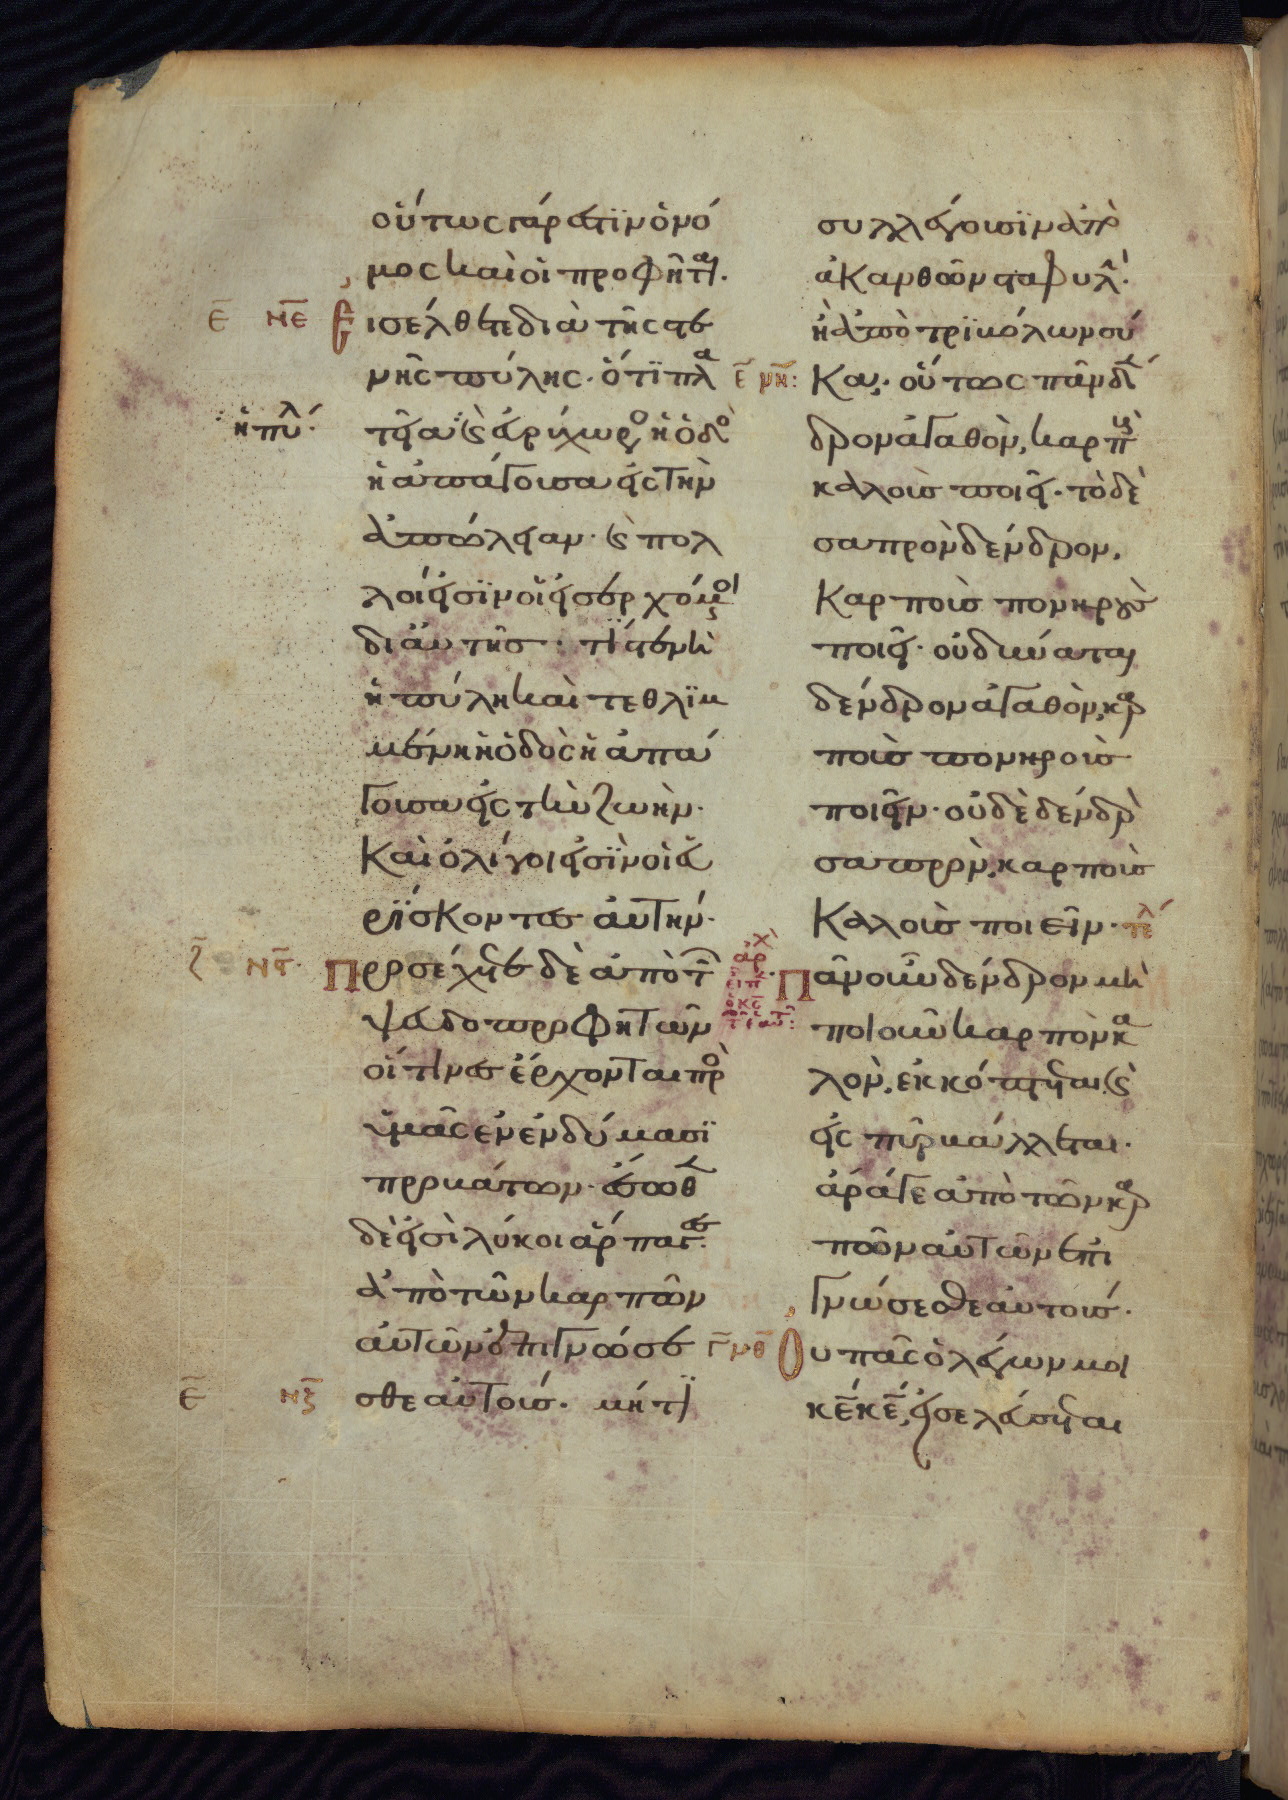 οὕτως γάρ ἐστϊν ὁ νό
μος καὶ οἱ προφῆται.
Εἰσέλθετε διὰ τῆς στε
νῆς πύλης. ὅτϊ πλα
τεῖα ἡ πύλη καὶ εὐρύχωρος ἡ ὁδὸς
ἡ ἀπάγουσα εἰς τὴν
ἀπώλειαν. καὶ πολ
λοί εἰσϊν οἱ εἰσερχόμενοι
δι' αὐτῆς. τί στενὴ
ἡ πύλη καὶ τεθλϊμ
μένη ἡ ὁδὸς ἡ ἀπά
γουσα εἰς τὴν ζωὴν.
καὶ ὀλίγοι εἰσϊν οἱ εὑ
ρϊσκοντες αὐτήν.
Προσέχετε δὲ ἀπὸ τῶν
ψευδοπροφητῶν
οἵτινες ἔρχονται πρὸς
ὑμᾶς ἐν ἐνδύμασϊ
προβάτων. ἔσωθεν
δὲ εἰσὶ λύκοι ἅρπαγες.
ἀπὸ τῶν καρπῶν
αὐτῶν ἐπιγνώσε
σθε αὐτούς. μήτϊ
συλλέγουσϊν ἀπὸ
ἀκανθῶν σταφυλὴν.
ἢ ἀπὸ τρϊβόλων σύ
κα; οὕτως πᾶν δέν
δρον ἀγαθὸν, καρποὺς
καλοὺς ποιεῖ. τὸ δὲ
σαπρὸν δένδρον,
καρποὺς πονηροὺς
ποιεῖ. οὐ δύναται
δένδρον ἀγαθὸν, καρ
ποὺς πονηροὺς
ποιεῖν. οὐδὲ δένδρον
σαπρὸν, καρποὺς
καλοὺς ποιεῖν. τέλ
Πᾶν οὖν δένδρον μὴ
ποιοῦν καρπὸν κα
λὸν, ἐκκόπτεται καὶ
εἰς πῦρ βάλλεται.
ἄρά γε ἀπὸ τῶν καρ
πῶν αὐτῶν ἐπι
γνώσεσθε αὐτούς.
Οὐ πᾶς ὁ λέγων μοι
κε κε, εἰσελεύσεται